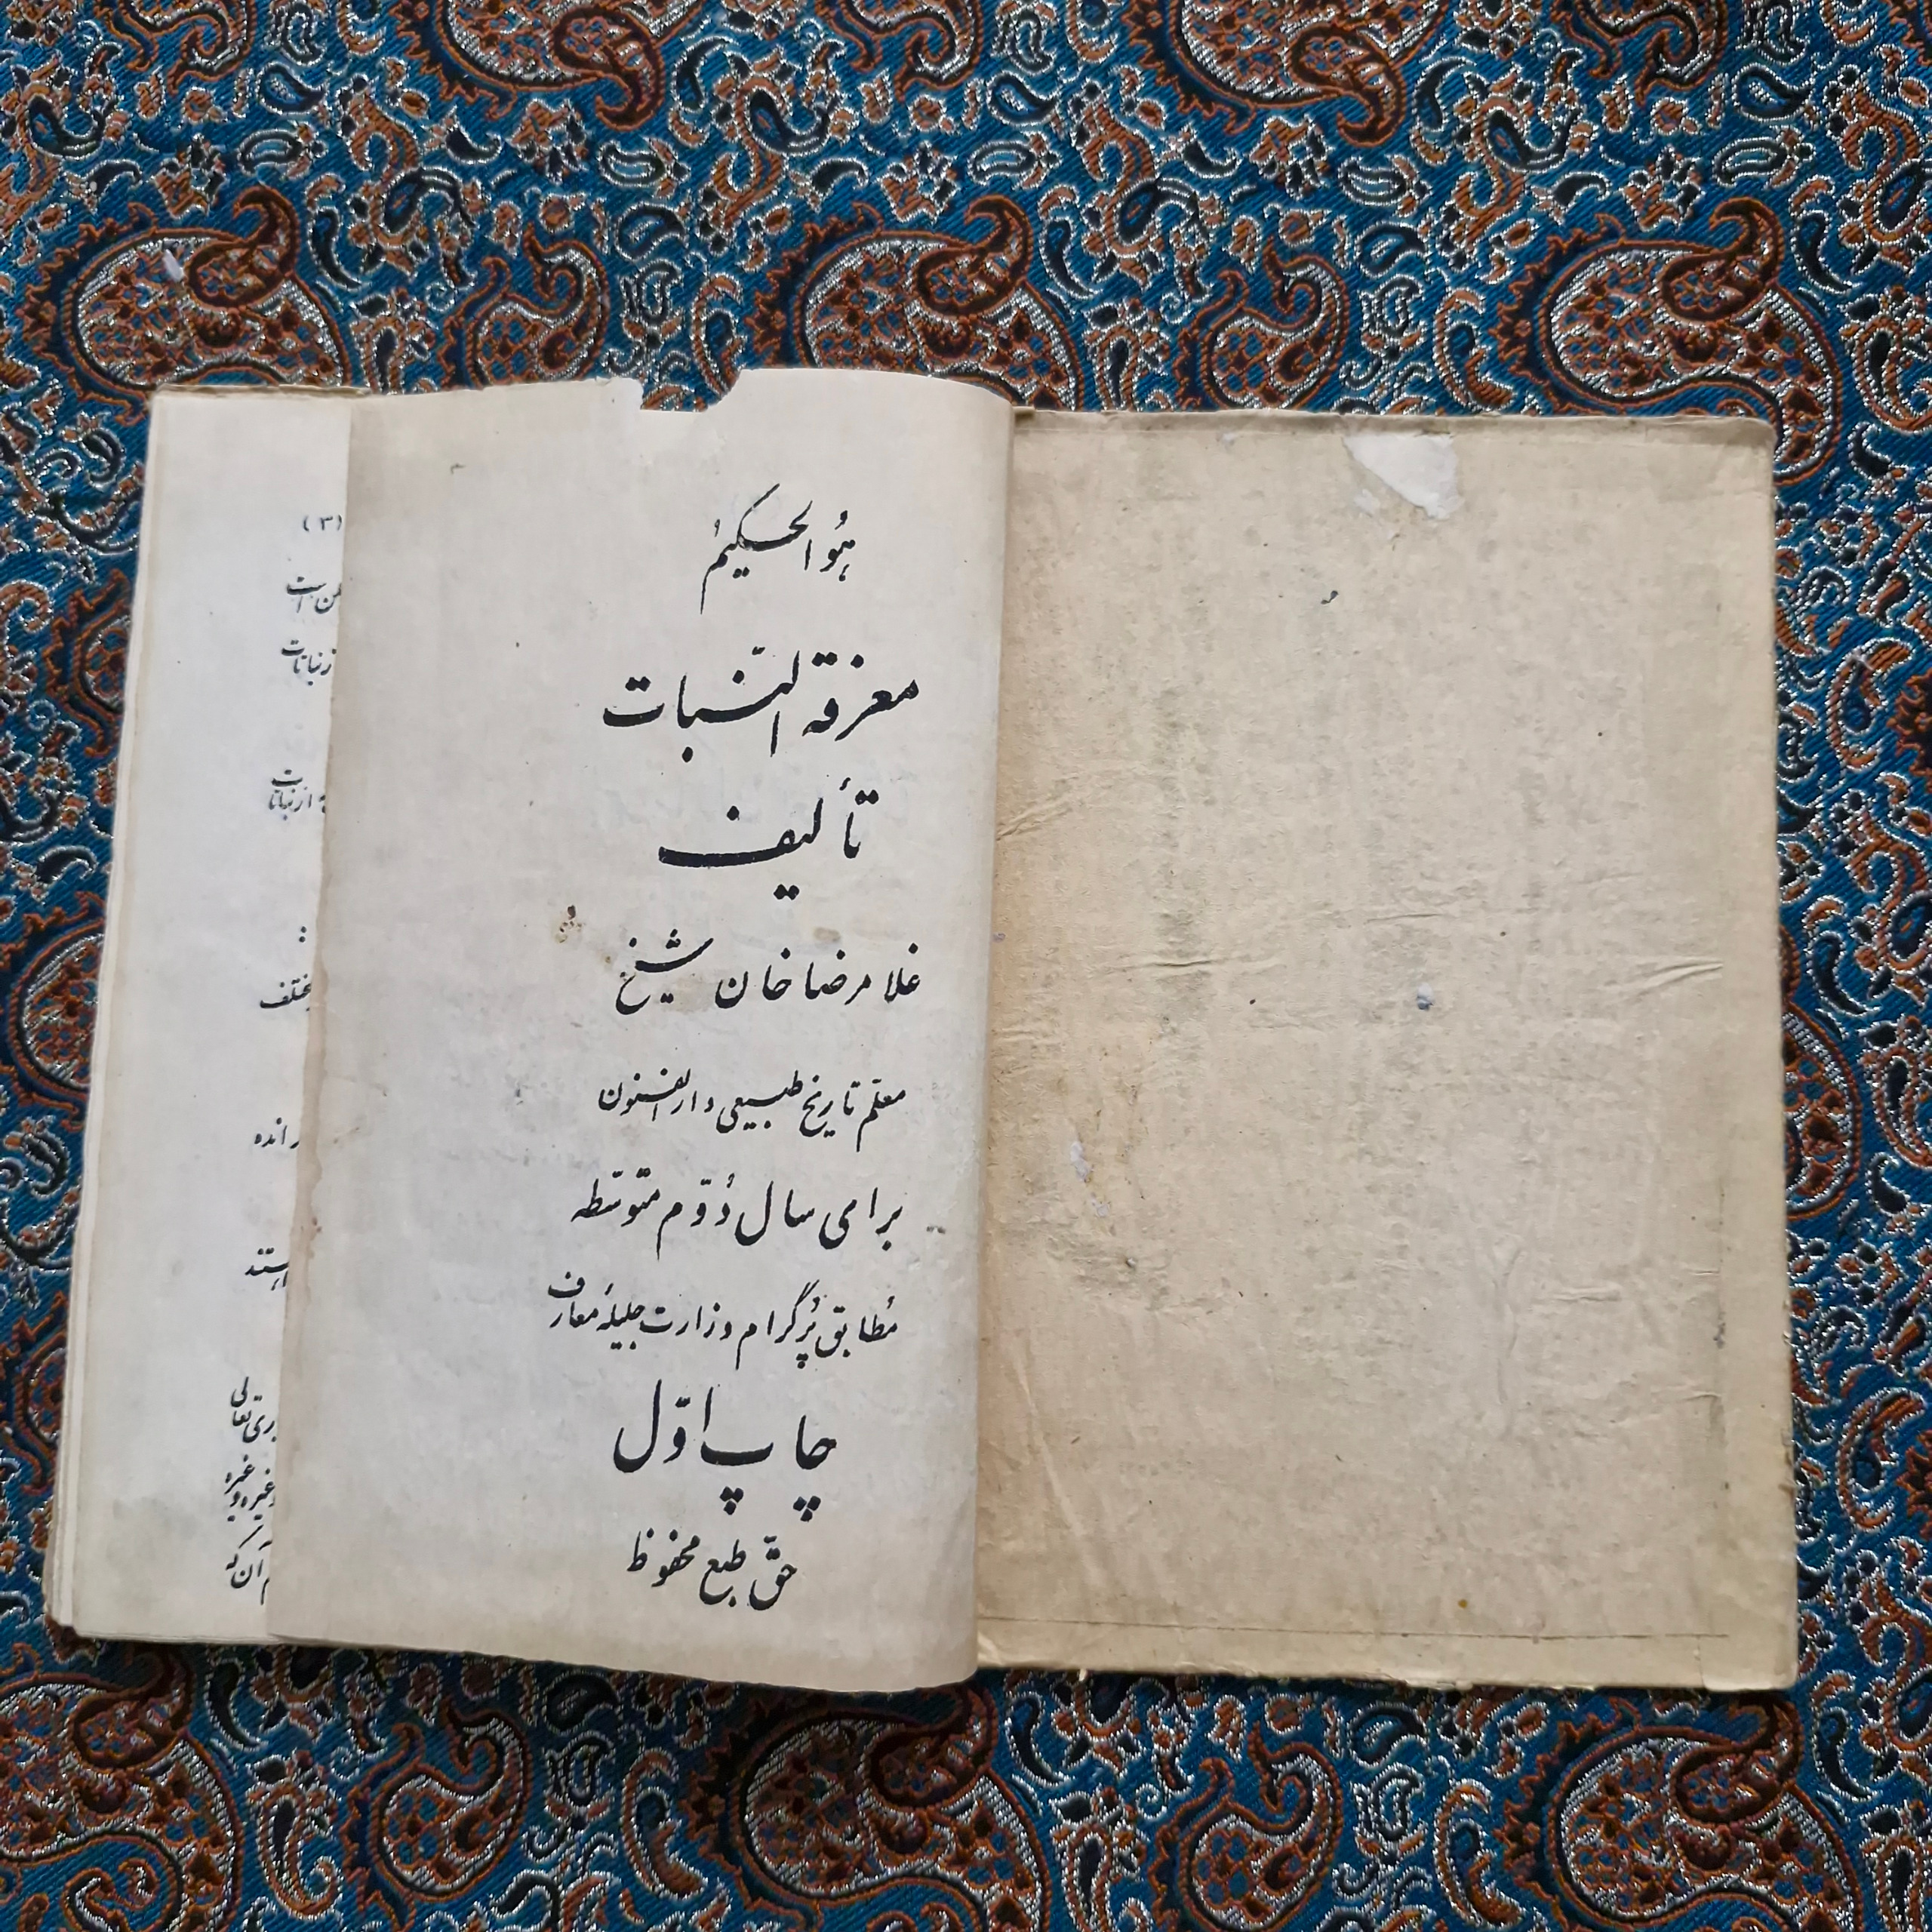 هُو الحکیمُ
معرفة النّبات
تألیف
غلامرضا خان شیخ
معلّم تاریخ طبیعی دارالفنون
برای سال دُوّم متوسّطه
مُطابق پُرگرام وزارت جلیلهٔ معارف
چاپ اوّل
حقّ طبع محفوظ
(٣)
است
از نباتات
از نباتات
:
مختلف
انده
غیره و غیره
آن که